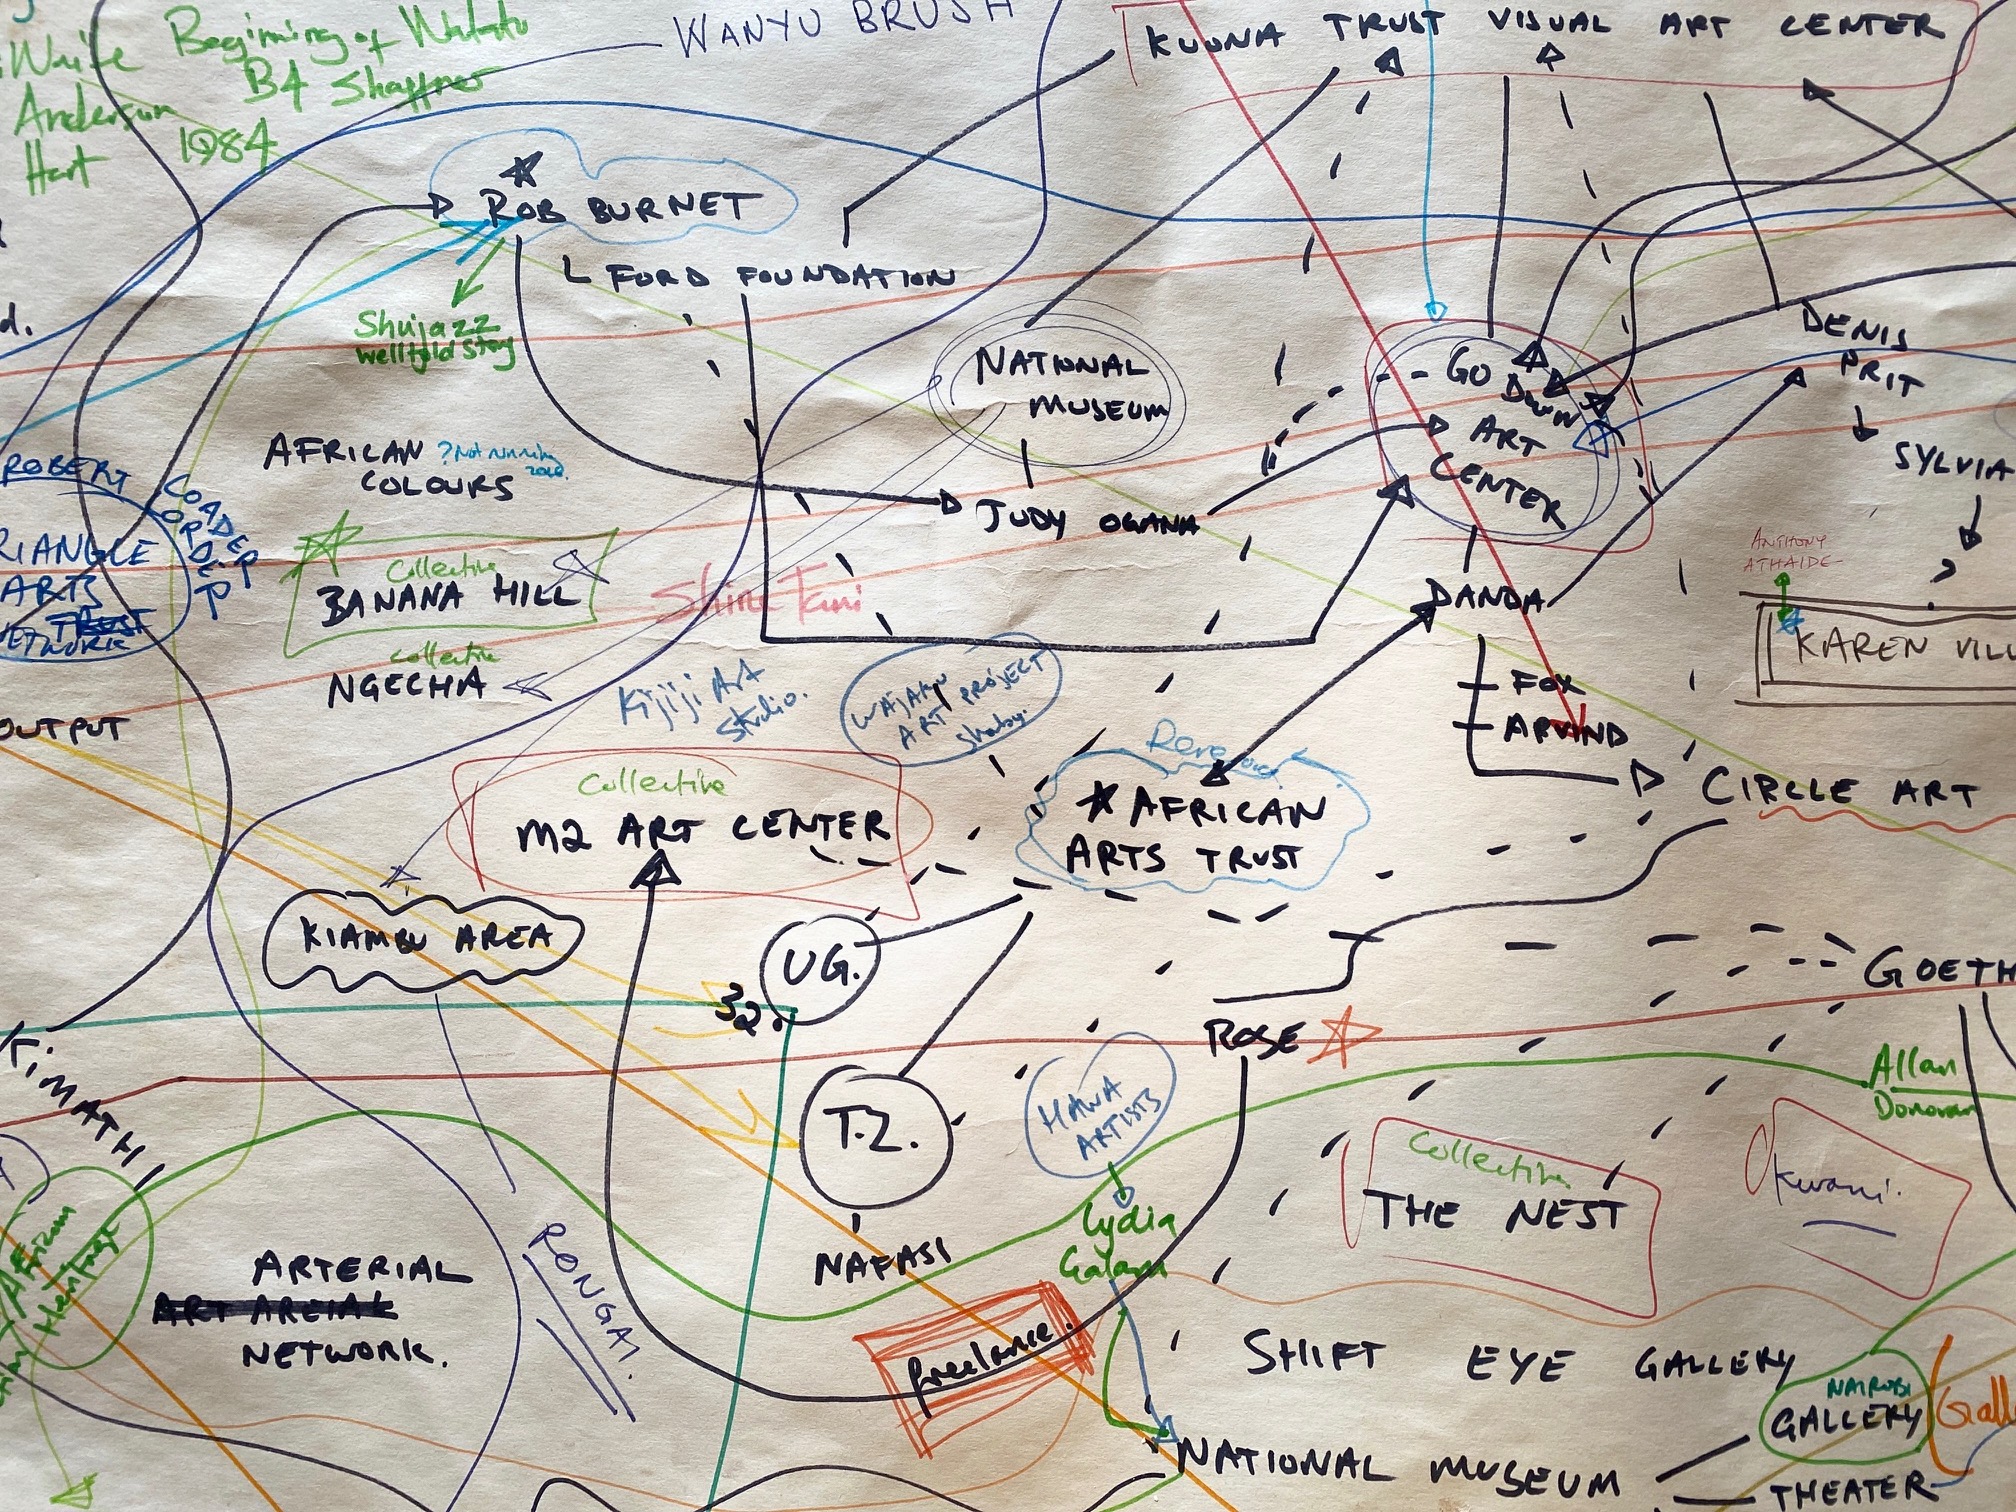 WANYU BRUSH
KUONA TRUST VISUAL ART CENTER
Write
Anderson
Hart
Beginning of Watatu
B4 Shaffner
1984
ROB BURNET
FORD FOUNDATION
Shujazz
well told story
NATIONAL
MUSEUM
GO
DOWN
ART
CENTER
DENIS
PRIT
SYLVIA
AFRICAN
COLOURS
? Not running
JUDY OGANA
ROBERT
COADEP
RIANGLE
ARTS
TRUST
NETWORK
Collective
BANANA HILL
Collective
NGECHA
Shine Tani
Kijiji Art
Studio.
WAJAKU
ART PROJECT
DANDA
FOX
ARVIND
CIRCLE ART
ANTHONY
ATHAIDE
KAREN VILL
OUTPUT
Collective
M2 ART CENTER
AFRICAN
ARTS TRUST
KIAMBU AREA
UG.
32.
ROSE
GOETH
TIMATHI
T.Z.
NAFASI
HAWA
ARTISTS
Lydia
Galavu
Allan
Donovan
Collective
THE NEST
Kwani.
African
Heritage
RONGAI
ARTERIAL
NETWORK.
freelance.
SHIFT EYE GALLERY
NAIROBI
GALLERY
Gall
NATIONAL MUSEUM
THEATER